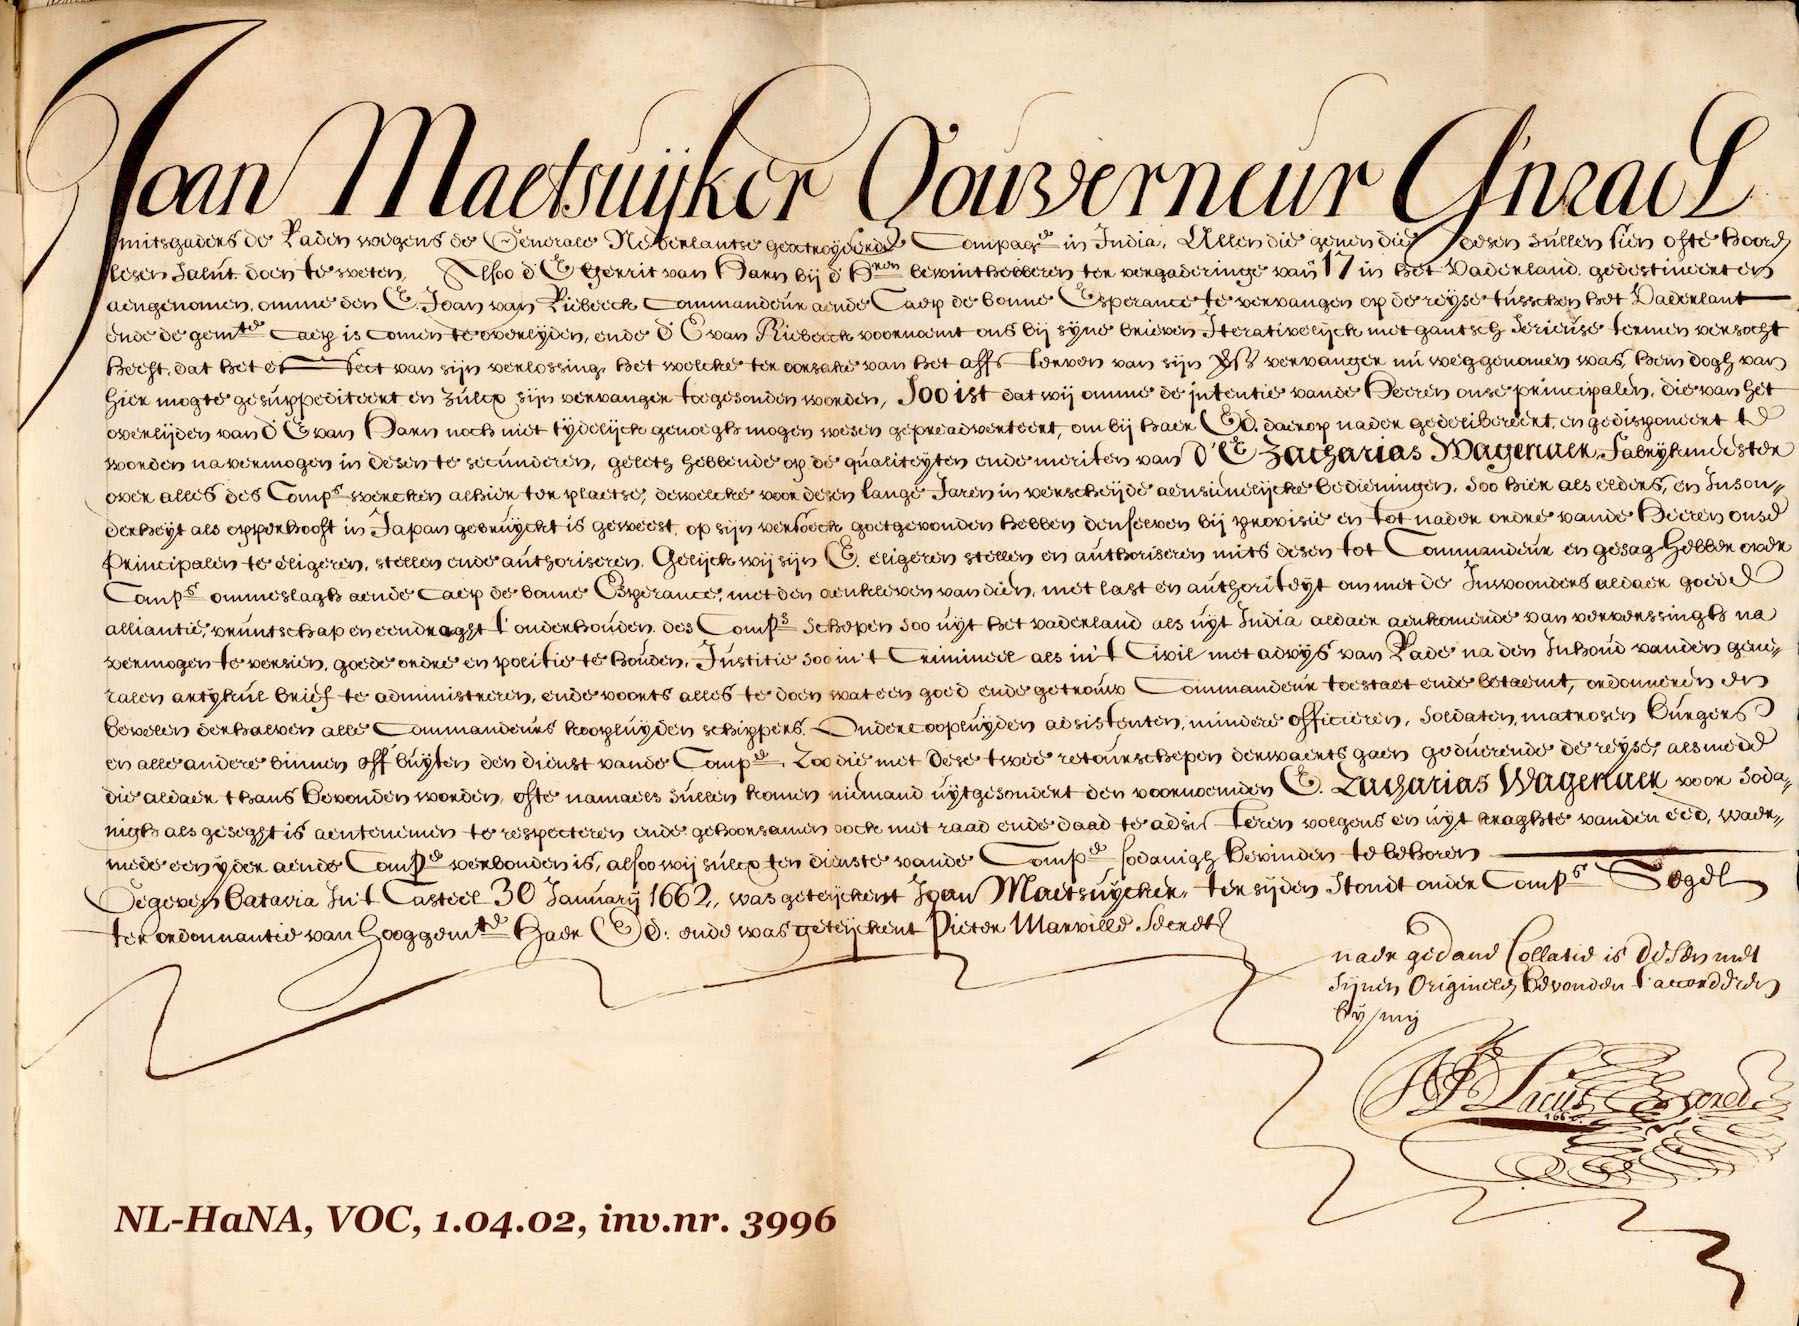 Joan Maetsuijker Gouverneur G'nrael
mitsgaders de Raden wegens de Generale Nederlantse geoctroyeerde Compage in India, Allen die genen die desen sullen sien ofte hooren
lesen salut doen te weten, Alsoo d' E Gerrit van Harn bij d' Hren bewinthebberen ter vergaderinge van 17 in het Vaderland gedestineert en
aengenomen, omme den E. Joan van Riebeeck Commandeur aende Caep de bonne Esperance te vervangen op de reyse tusschen het Vaderlant
ende de gemte Caep is comen te overlyden, ende d' E van Riebeeck voornaemt ons bij syne brieven Iterativelijck met gantsch serieuse termen versocht
heeft, dat het effect van sijn verlossing, het welcke ter oorsake van het affsterven van sijn vervanger nu weggenomen was, hem dogh van
hier mogte gesuppediteert en zulcx sijn vervanger toegesonden worden, Soo ist dat wij omme de intentie vande Heeren onse principalen, die van het
overlijden van d' E van Harn noch niet tydelijck genoegh mogen wesen geprеadverteert, om bij haer Ed. daerop nader gedelibereert, en gedisponeert te
worden na vermogen in desen te secunderen, geleth hebbende op de qualiteyten ende meriten van d' E Zacharias Wagenaer, Fabrykmeester
over alles des Comps wercken alhier ter plaetse, dewelcke voor desen lange Jaren in verscheyde aensienelijcke bedieningen, soo hier als elders, en Inson-
derheyt als opperhooft in Japan gebruyckt is geweest, op sijn versoeck goetgevonden hebben denselven bij provisie en tot nader ordre vande Heeren onse
Principalen te eligeren, stellen ende authoriseren, Gelijck wij sijn E. eligeren stellen en authoriseren mits desen tot Commandeur en gesaghebber over
Comps ommeslagh aende Caep de bonne Esperance, met den aenkleven van dien, met last en authoriteyt om met de Inwoonders aldaer goede
alliantie, vruntschap en eendraght t' onderhouden des Comps schepen soo uyt het vaderland als uyt India aldaer aenkomende van verversingh na
vermogen te versien, goede ordre en politie te houden, Justitie soo in't Crimineel als in't Civil met advys van Rade na den Inhoud vanden gene-
ralen artykul brief te administreren, ende voorts alles te doen wat een goed ende getrouw Commandeur toestaet ende betaemt, ordonneren en
bevelen derhalven alle Commandeurs kooplu͏yden schippers, Ondercoopluyden adsistenten, mindere officieren, soldaten, matrosen Burgers
en alle andere binnen off buyten den dienst vande Compe, Zoo die met dese twee retourschepen derwaerts gaen geduerende de reyse, als mede
die aldaer thans bevonden worden, ofte namaels sullen komen niemand uytgesondert den voornoemden E. Zacharias Wagenaer voor soda-
nigh als geseght is aentenemen te respecteren ende gehoorsamen oock met raad ende daad te adsisteren volgens en uyt kraghte vanden eed, waer-
mede een yder aende Compe verbonden is, alsoo wij sulcx ten dienste vande Compe sodanigh bevinden te behoren
Gegeven Batavia In't Casteel 30 January 1662, was geteyckent Joan Maetsuycker, ter syden stont onder Comps Segel
ter ordonnantie van hooggemte Haer Ed: ende was geteijckent Pieter Marville, Secrets
naer gedane Collatie is desen met
sijnen Originele bevonden t' accorderen
bij mij
Lacus Secret
166
NL-HaNA, VOC, 1.04.02, inv.nr. 3996